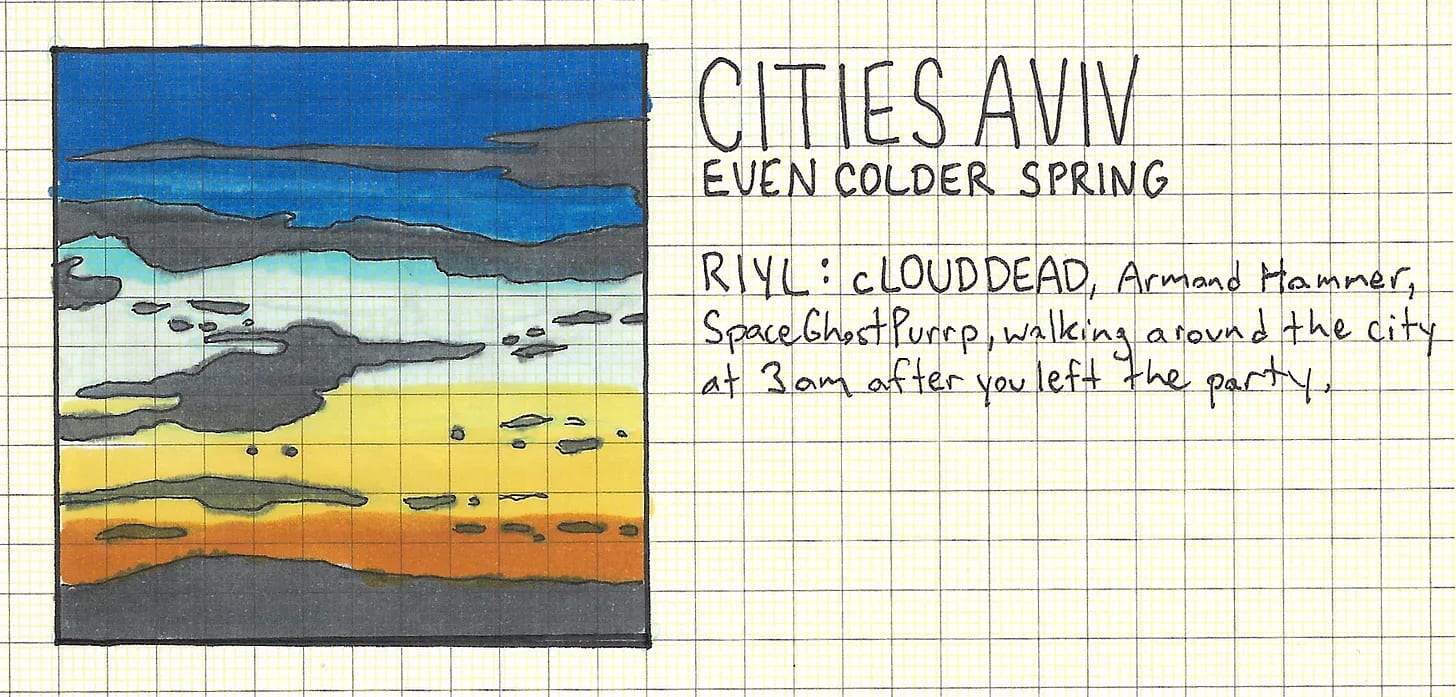 CITIES AVIV
EVEN COLDER SPRING
RIYL: cLOUDDEAD, Armand Hammer,
SpaceGhostPurrp, walking around the city
at 3am after you left the party.